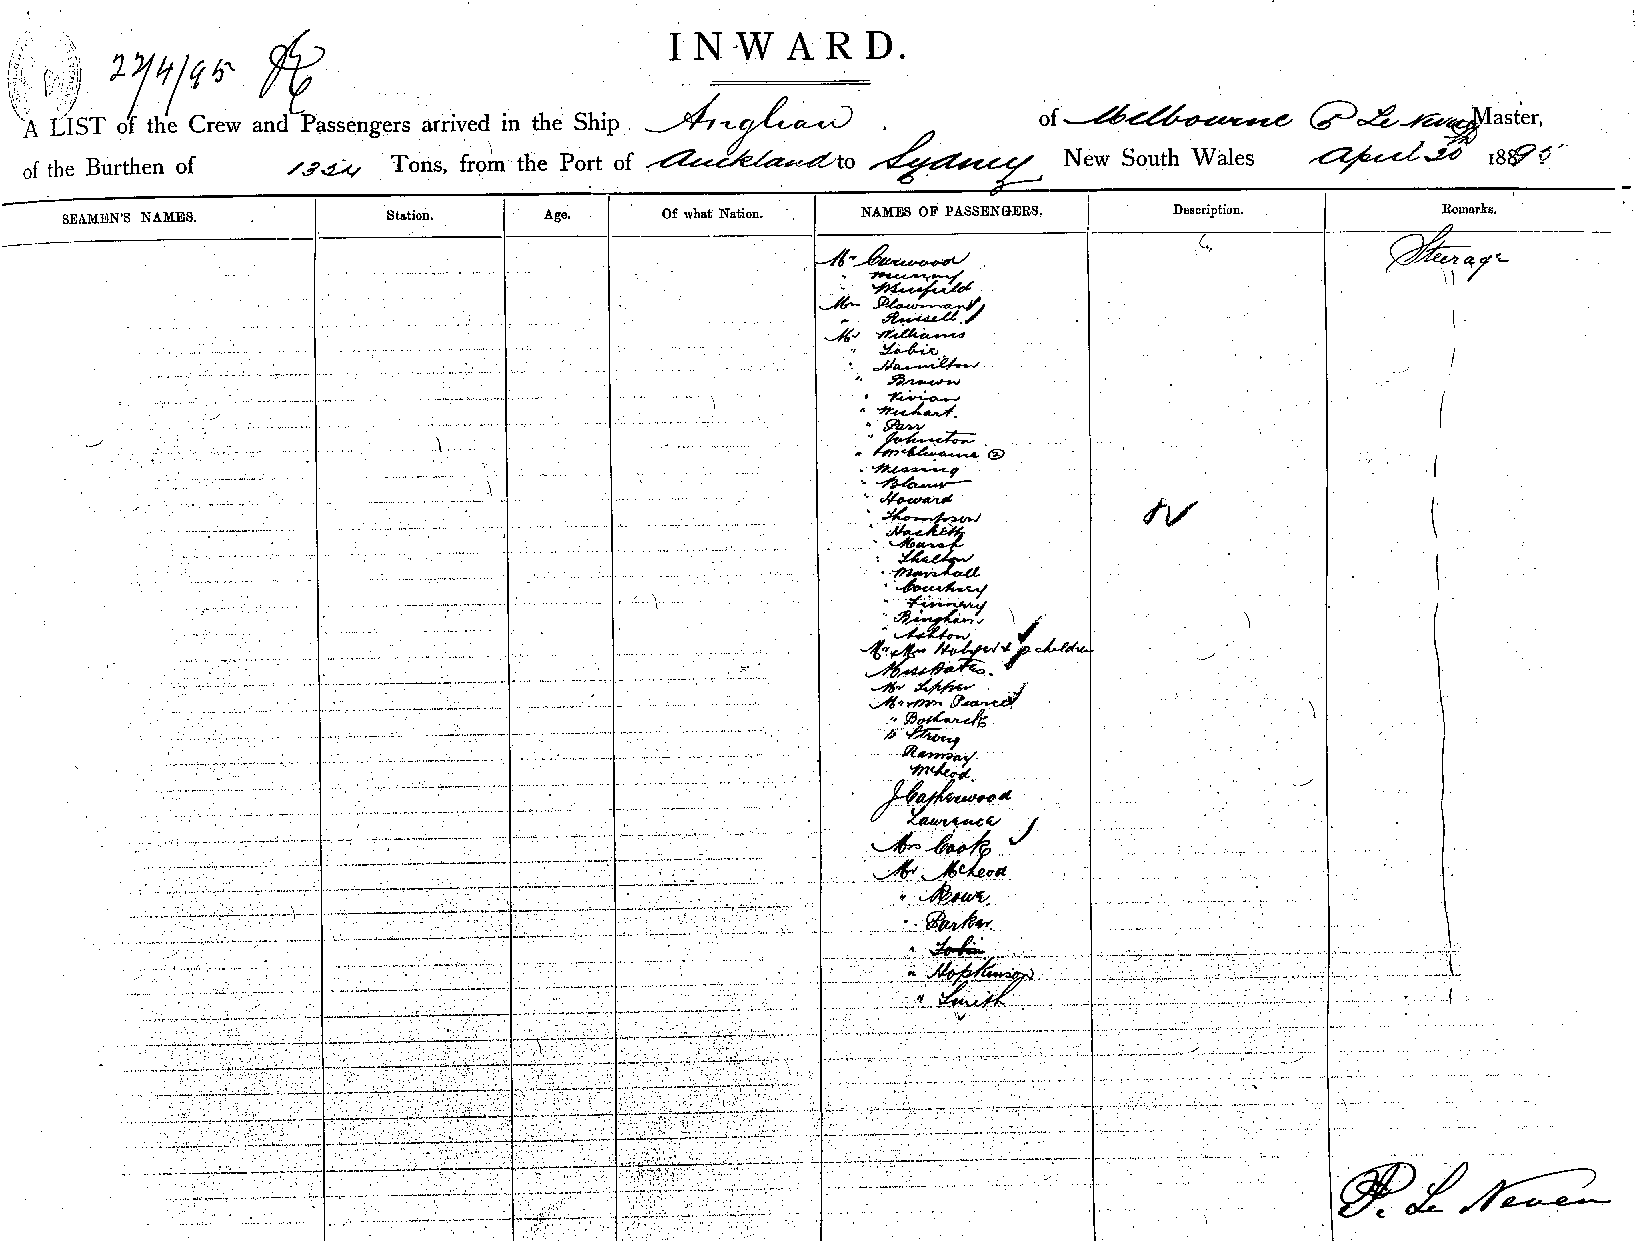 INWARD.
22/4/95
A LIST of the Crew and Passengers arrived in the Ship Anglian of Melbourne P Le Neven Master,
of the Burthen of 1354 Tons, from the Port of Auckland to Sydney New South Wales April 20 1895
SEAMEN'S NAMES. Station. Age. Of what Nation. NAMES OF PASSENGERS. Description. Remarks.
Mr Curwood Steerage
" Murray
" Musfield
Mrs Plowman
" Russell
Mr Williams
" Tobin
" Hamilton
" Brown
" Vivian
" Wishart.
" Parr
" Johnston
" McElwaine ②
" Messing
" Blauw
" Howard
" Thompson
" Hackett
" Marsh
" Shelton
" Marshall
" Courtney
" Finnery
" Bingham
" Ashton
Mr Mrs & children
Miss Bates.
Mr
Mr Mrs Pearce
"
" Strong
Ramsay
McLeod.
J Catherwood
Lawrence
Mrs Cook
Mr McLeod
" Rowe.
" Parker
" Tobin
" Hopkinson
" Smith
P. Le Neven